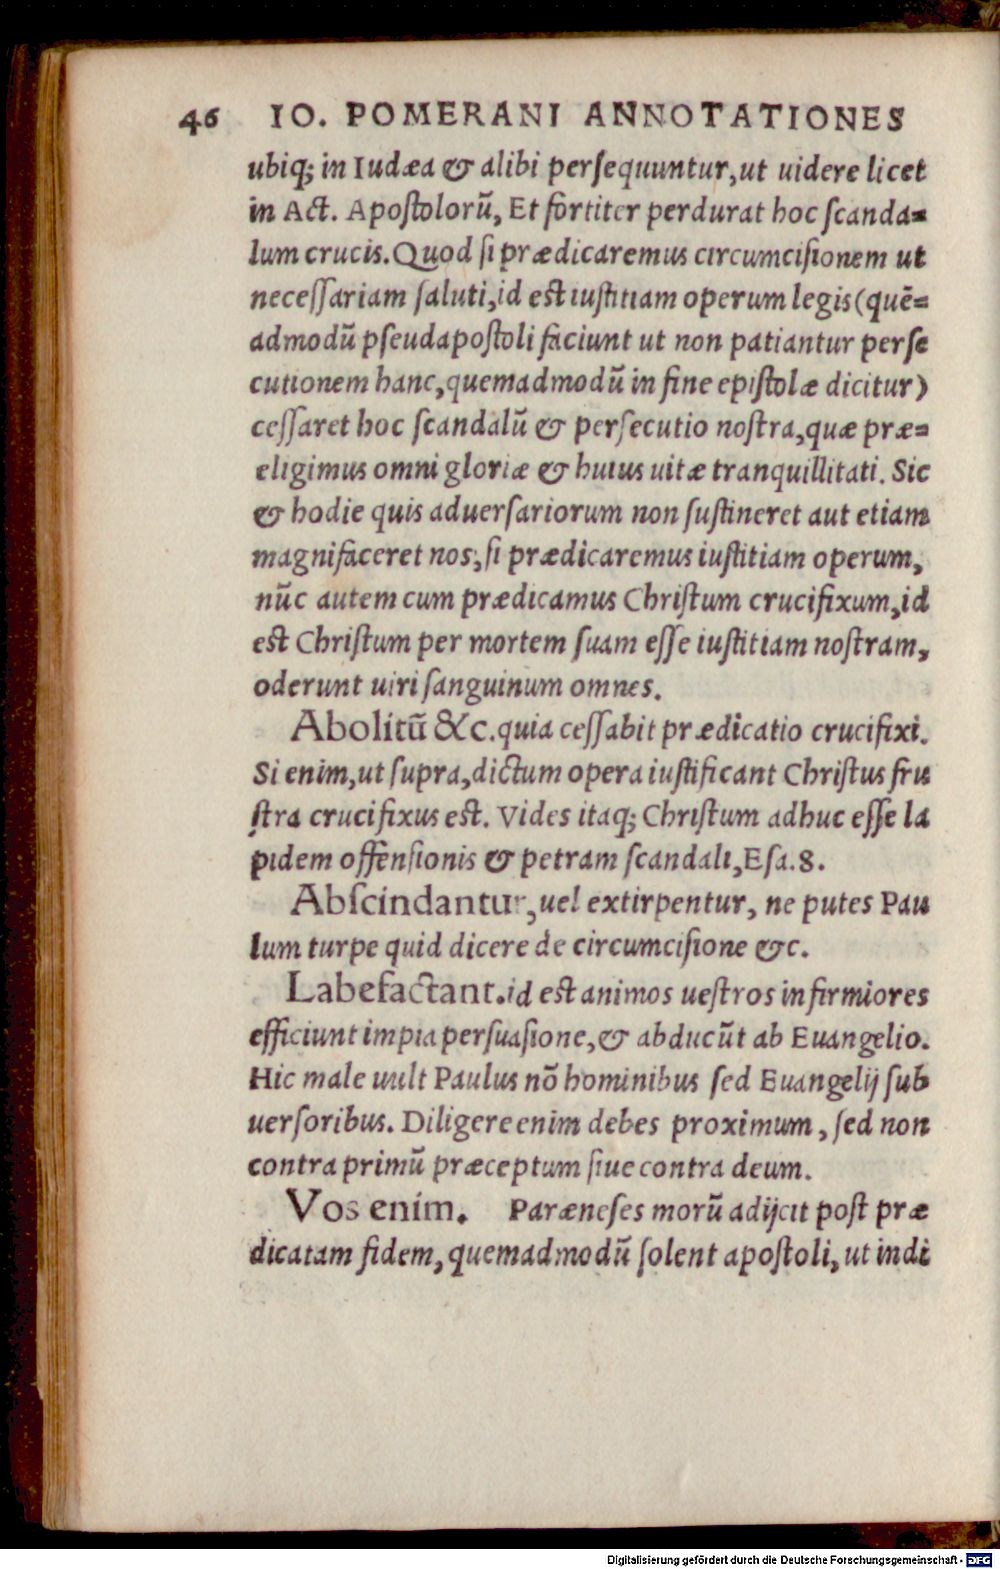 46 IO. POMERANI ANNOTATIONES
ubiq; in Iudæa & alibi persequuntur, ut uidere licet
in Act. Apostolorū, Et fortiter perdurat hoc scanda=
lum crucis. Quod si prædicaremus circumcisionem ut
necessariam saluti, id est iustitiam operum legis (quē=
admodū pseudapostoli faciunt ut non patiantur perse
cutionem hanc, quemadmodū in fine epistolæ dicitur)
cessaret hoc scandalū & persecutio nostra, quæ præ=
eligimus omni gloriæ & huius uitæ tranquillitati. Sic
& hodie quis aduersariorum non sustineret aut etiam
magnifaceret nos, si prædicaremus iustitiam operum,
nūc autem cum prædicamus Christum crucifixum, id
est Christum per mortem suam esse iustitiam nostram,
oderunt uiri sanguinum omnes.
Abolitū &c. quia cessabit prædicatio crucifixi.
Si enim, ut supra, dictum opera iustificant Christus fru
stra crucifixus est. Vides itaq; Christum adhuc esse la
pidem offensionis & petram scandali, Esa. 8.
Abscindantur, uel extirpentur, ne putes Pau
lum turpe quid dicere de circumcisione &c.
Labefactant. id est animos uestros infirmiores
efficiunt impia persuasione, & abducūt ab Euangelio.
Hic male uult Paulus nō hominibus sed Euangelij sub
uersoribus. Diligere enim debes proximum, sed non
contra primū præceptum siue contra deum.
Vos enim. Paræneses morū adijcit post præ
dicatam fidem, quemadmodū solent apostoli, ut indi
Digitalisierung gefördert durch die Deutsche Forschungsgemeinschaft - DFG